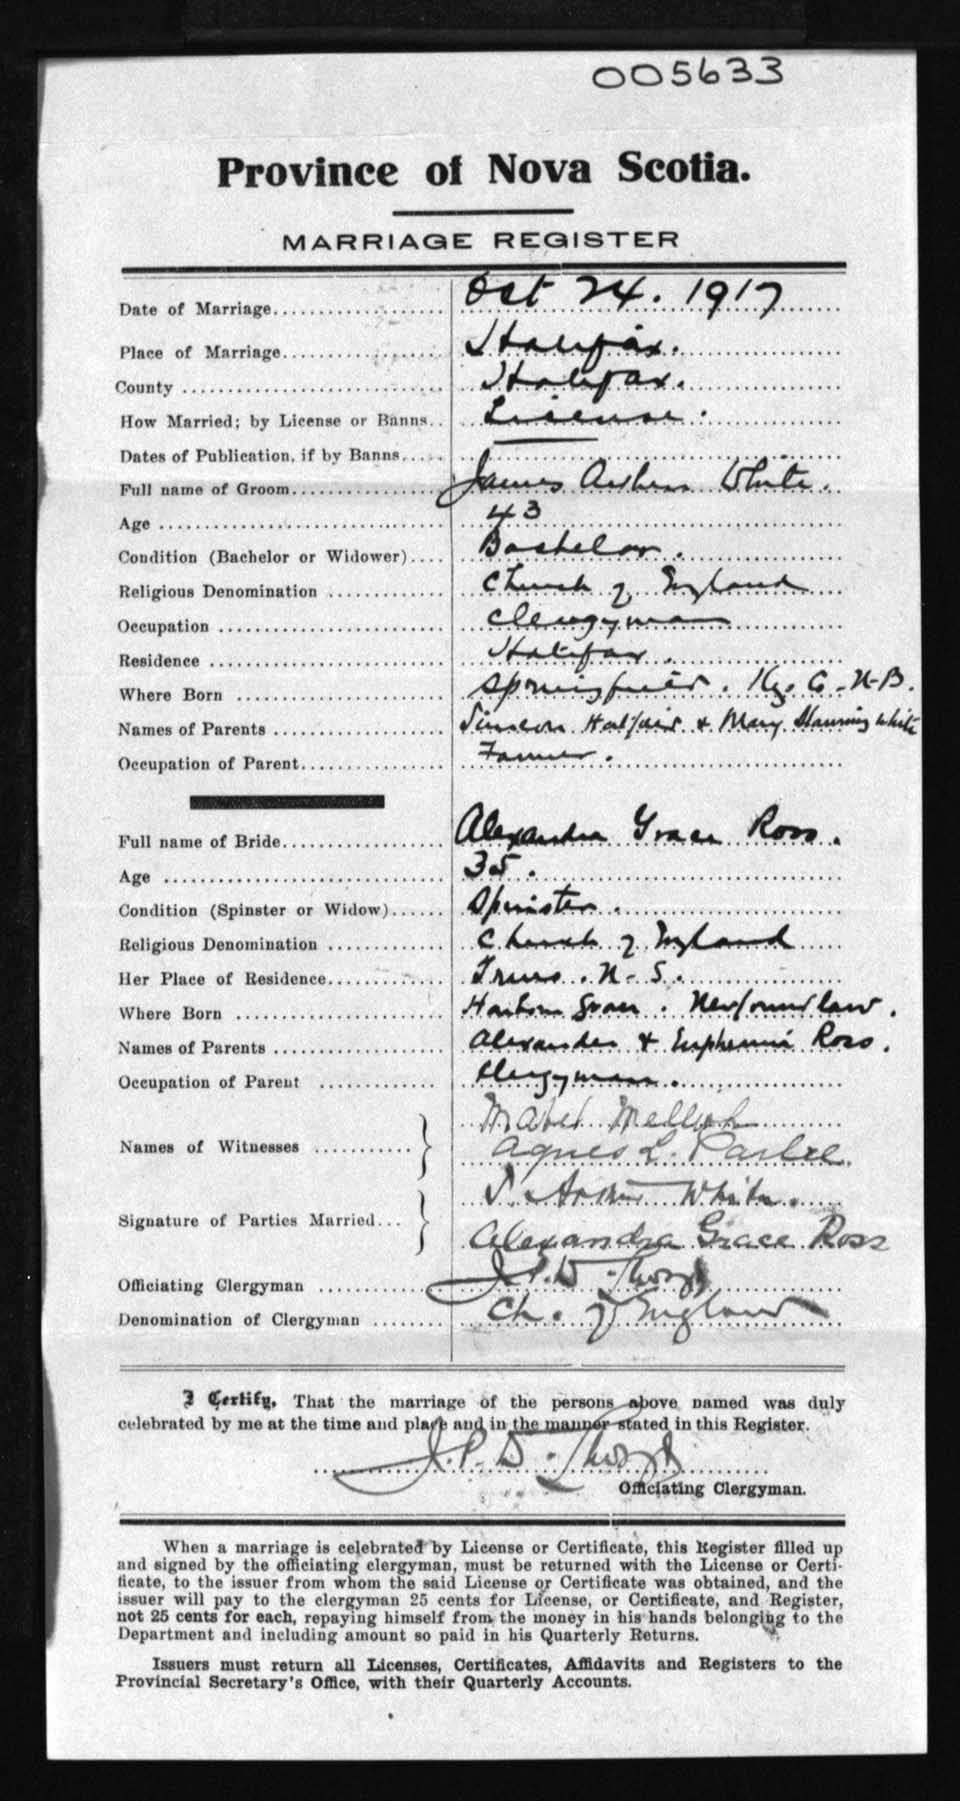 005633
Province of Nova Scotia.
MARRIAGE REGISTER
Date of Marriage Oct 24. 1917
Place of Marriage Halifax.
County Halifax.
How Married; by License or Banns License.
Dates of Publication, if by Banns
Full name of Groom James Arthur White.
Age 43
Condition (Bachelor or Widower) Bachelor.
Religious Denomination Church of England
Occupation Clergyman
Residence Halifax.
Where Born Springfield. Kgs. Co. N-B.
Names of Parents Simeon & Mary White
Occupation of Parent Farmer.
Full name of Bride Alexandra Grace Ross.
Age 35.
Condition (Spinster or Widow) Spinster.
Religious Denomination Church of England
Her Place of Residence Truro. N-S.
Where Born Harbour Grace. Newfoundland.
Names of Parents Alexander & Euphemia Ross.
Occupation of Parent Clergyman.
Names of Witnesses Mabel Mellish
Agnes L. Parlee.
Signature of Parties Married J. Arthur White.
Alexandra Grace Ross
Officiating Clergyman J.P.D.
Denomination of Clergyman Ch. of England
I Certify, That the marriage of the persons above named was duly
celebrated by me at the time and place and in the manner stated in this Register.
J.P.D.
Officiating Clergyman.
When a marriage is celebrated by License or Certificate, this Register filled up
and signed by the officiating clergyman, must be returned with the License or Certi-
ficate, to the issuer from whom the said License or Certificate was obtained, and the
issuer will pay to the clergyman 25 cents for License, or Certificate, and Register,
not 25 cents for each, repaying himself from the money in his hands belonging to the
Department and including amount so paid in his Quarterly Returns.
Issuers must return all Licenses, Certificates, Affidavits and Registers to the
Provincial Secretary's Office, with their Quarterly Accounts.